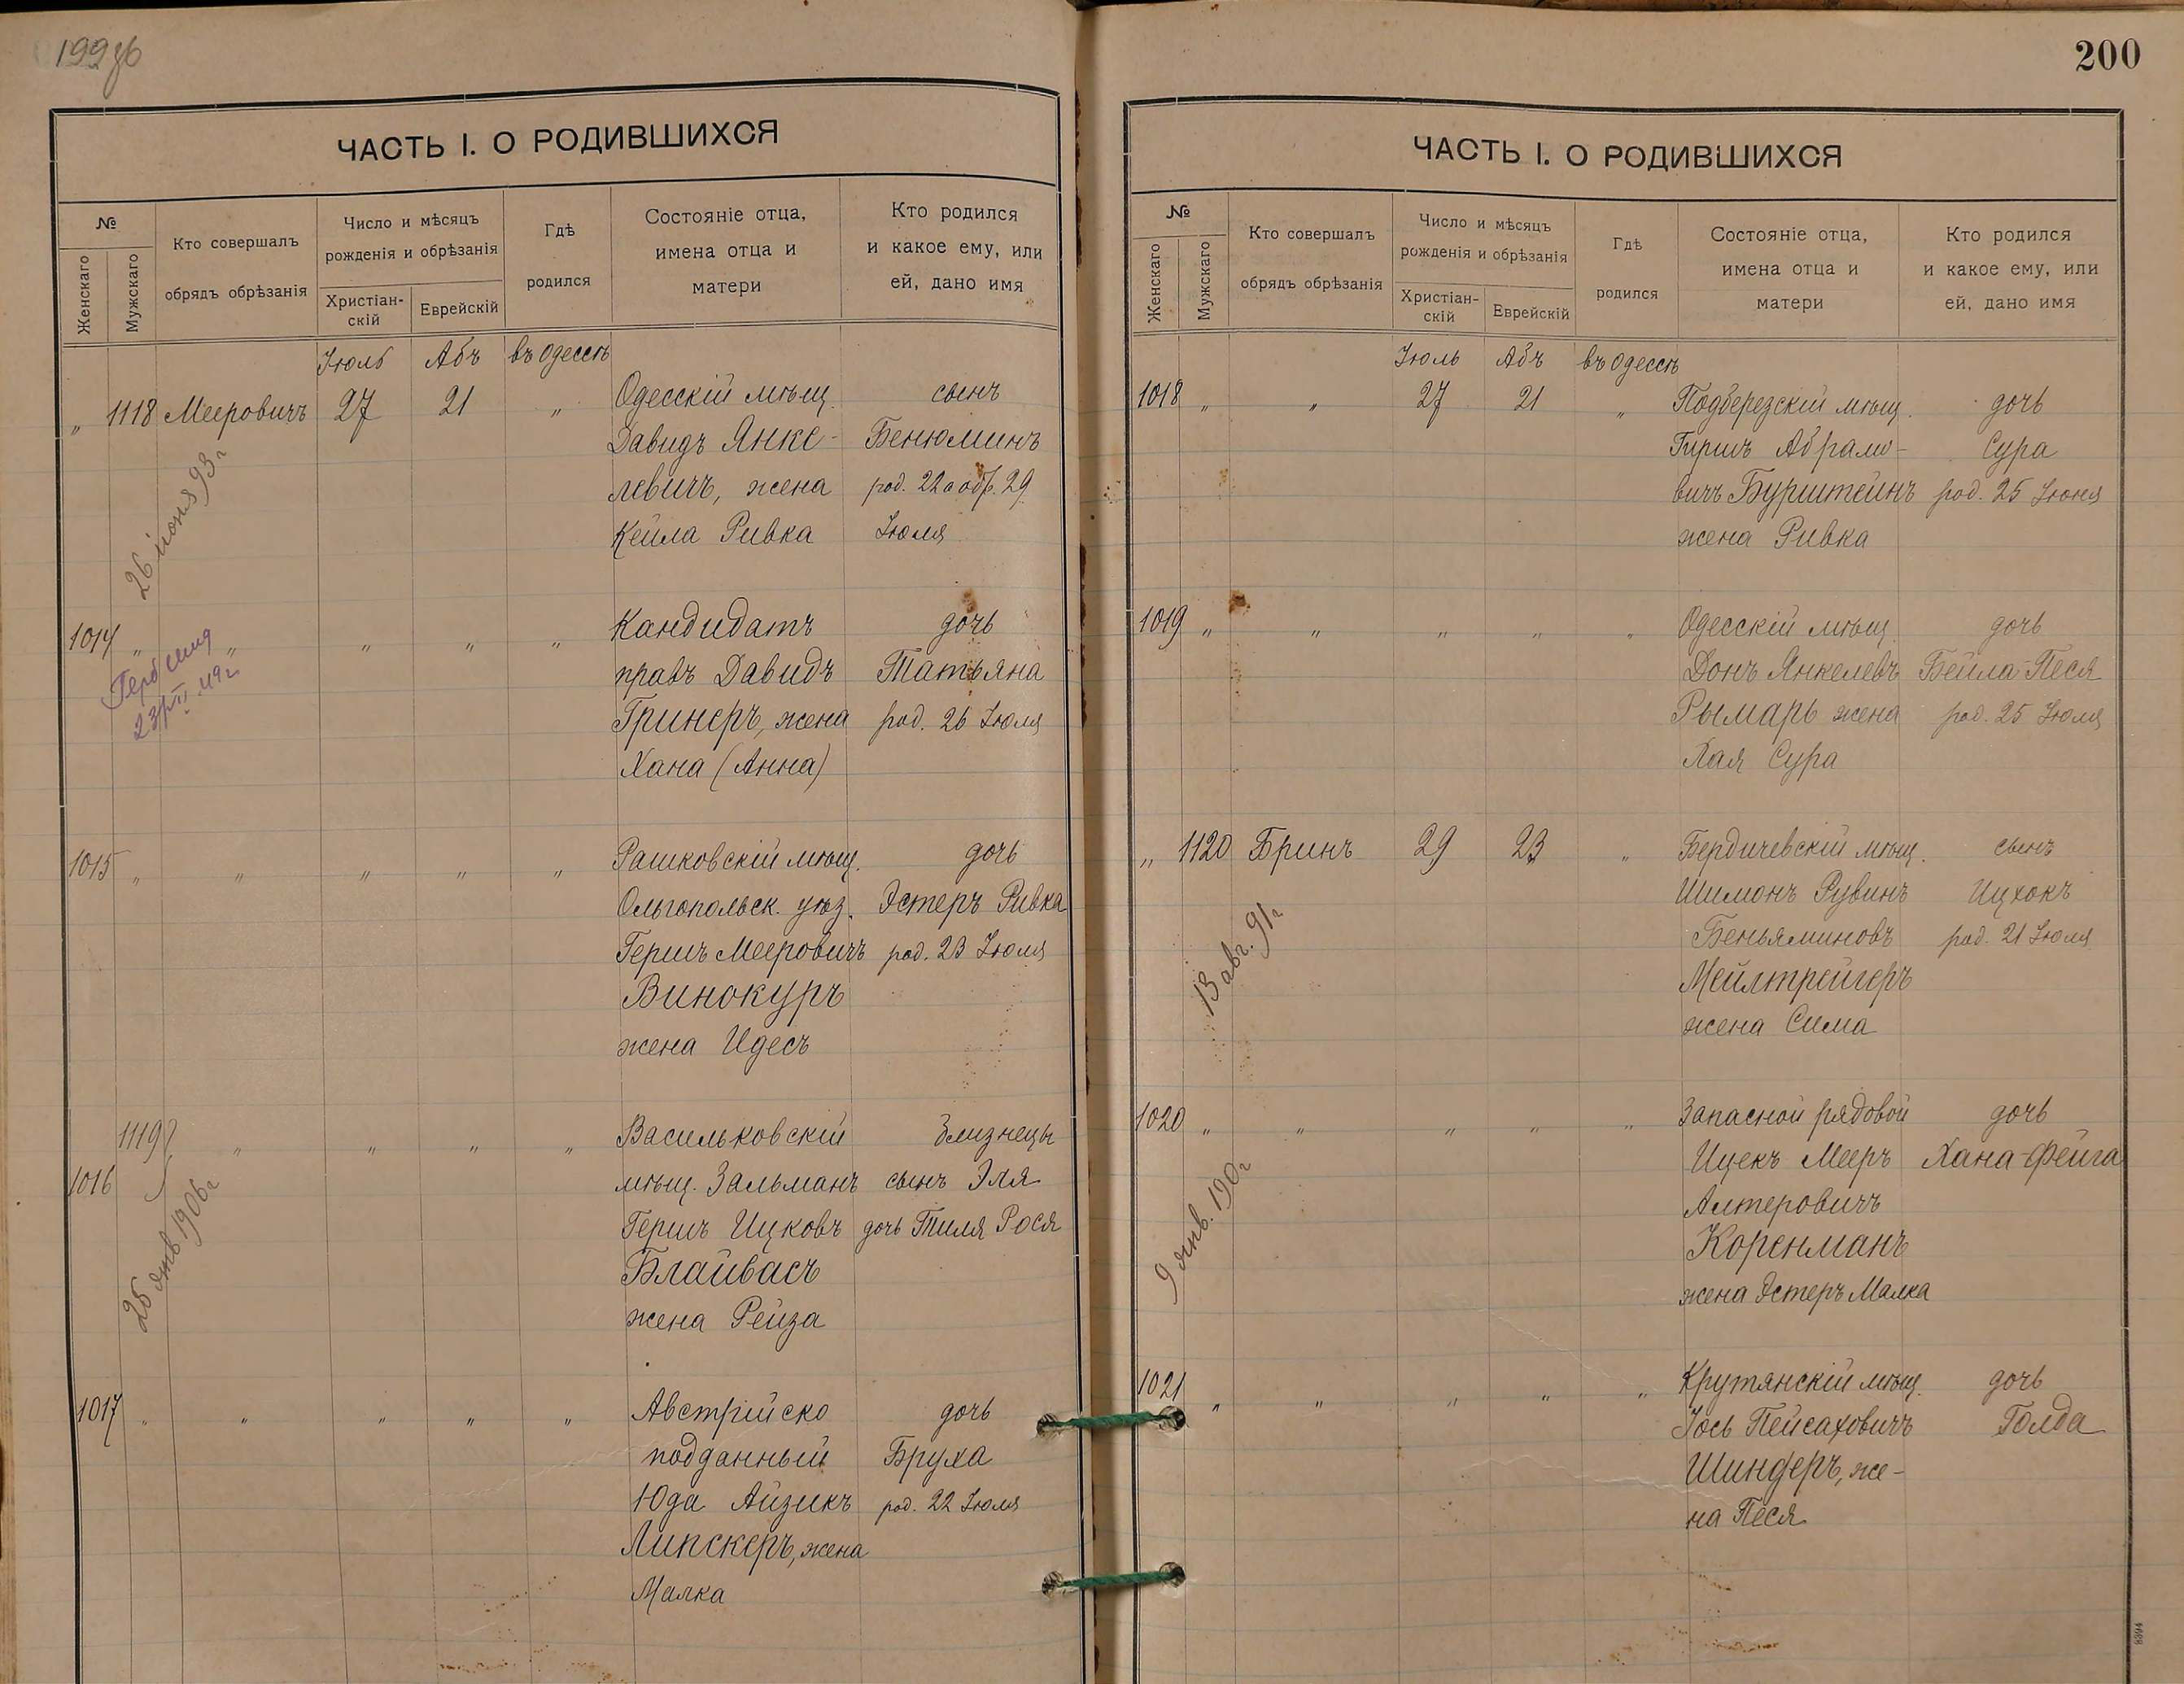 199об
ЧАСТЬ I. О РОДИВШИХСЯ
№
Женскаго
Мужскаго
Кто совершалъ
обрядъ обрѣзанія
Число и мѣсяцъ
рожденія и обрѣзанія
Христіан-
скій
Еврейскій
Гдѣ
родился
Состояніе отца,
имена отца и
матери
Кто родился
и какое ему, или
ей, дано имя
Іюль Абъ въ Одессѣ
„ 1118 Мееровичъ 27 21 „ Одесскій мѣщ. сынъ
Давидъ Янке- Бенюминъ
левичъ, жена род. 22 а обр. 29
Кейла Ривка Іюля
26 іюня 93 г
1014 „ „ „ „ „ Кандидатъ дочь
правъ Давидъ Татьяна
Гринеръ, жена род. 26 Іюля
Хана (Анна)
23/VI 49 г
1015 „ „ „ „ „ Рашковскій мѣщ. дочь
Ольгопольск. уѣз. Эстеръ Ривка
Гершъ Мееровичъ род. 23 Іюля
Винокуръ
жена Идесъ
1119 „ „ „ „ Васильковскій близнецы
1016 мѣщ. Зальманъ сынъ Эля
Гершъ Ицковъ дочь Тиля Рося
Блайвасъ
жена Рейза
25 янв 1906 г
1017 „ „ „ „ „ Австрійско дочь
подданный Бруха
Юда Айзикъ род. 22 Іюля
Липскеръ, жена
Малка
200
ЧАСТЬ I. О РОДИВШИХСЯ
№
Женскаго
Мужскаго
Кто совершалъ
обрядъ обрѣзанія
Число и мѣсяцъ
рожденія и обрѣзанія
Христіан-
скій
Еврейскій
Гдѣ
родился
Состояніе отца,
имена отца и
матери
Кто родился
и какое ему, или
ей, дано имя
Іюль Абъ въ Одессѣ
1018 „ „ 27 21 „ Подберезскій мѣщ. дочь
Гиршъ Абрамо- Сура
вичъ Бурштейнъ род. 25 Іюня
жена Ривка
1019 „ „ „ „ „ Одесскій мѣщ. дочь
Донъ Янкелевъ Бейла-Песя
Рымарь жена род. 25 Іюля
Хая Сура
„ 1120 Бринъ 29 23 „ Бердичевскій мѣщ. сынъ
Шимонъ Рувинъ Ицхокъ
Беньяминовъ род. 21 Іюля
Мейлтрейгеръ
жена Сима
13 авг. 91 г
1020 „ „ „ „ „ Запасной рядовой дочь
Ицекъ Мееръ Хана-Фейга
Алтеровичъ
Коренманъ
жена Эстеръ Малка
9 янв. 190 г
1021 „ „ „ „ „ Крутянскій мѣщ. дочь
Іось Пейсаховичъ Голда
Шиндеръ, же-
на Песя
8394